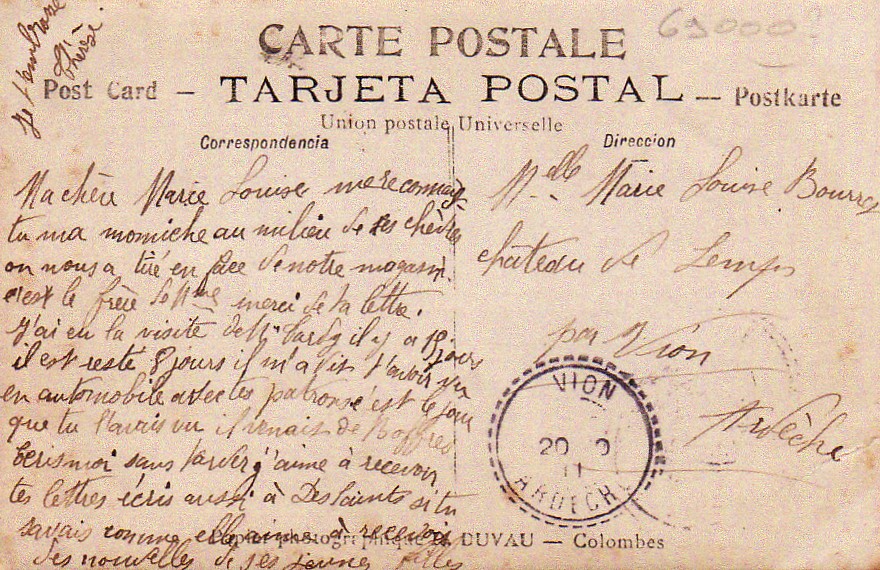 Je t'embrasse
Thérèse
69000
CARTE POSTALE
Post Card — TARJETA POSTAL — Postkarte
Union postale Universelle
Correspondencia
Ma chère Marie Louise me reconnay
tu ma momiche au milieu de ses chèvres
on nous a tiré en face de notre magasin
c'est le frère de Mme merci de ta lettre.
J'ai eu la visite de M. il y a 15 jours
il est resté 8 jours il m'a dit t'avoir vu
en automobile avec tes patrons c'est le jour
que tu l'avais vu il venais de Boffres
Écris moi sans tarder j'aime à recevoir
tes lettres écris aussi à Dessaints si tu
savais comme elle aime à recevoir
des nouvelles de ses jeunes filles
Direccion
Melle Marie Louise
château de Lemps
par Vion
Ardèche
VION
20
11
ARDECHE
Papier photographique DUVAU — Colombes